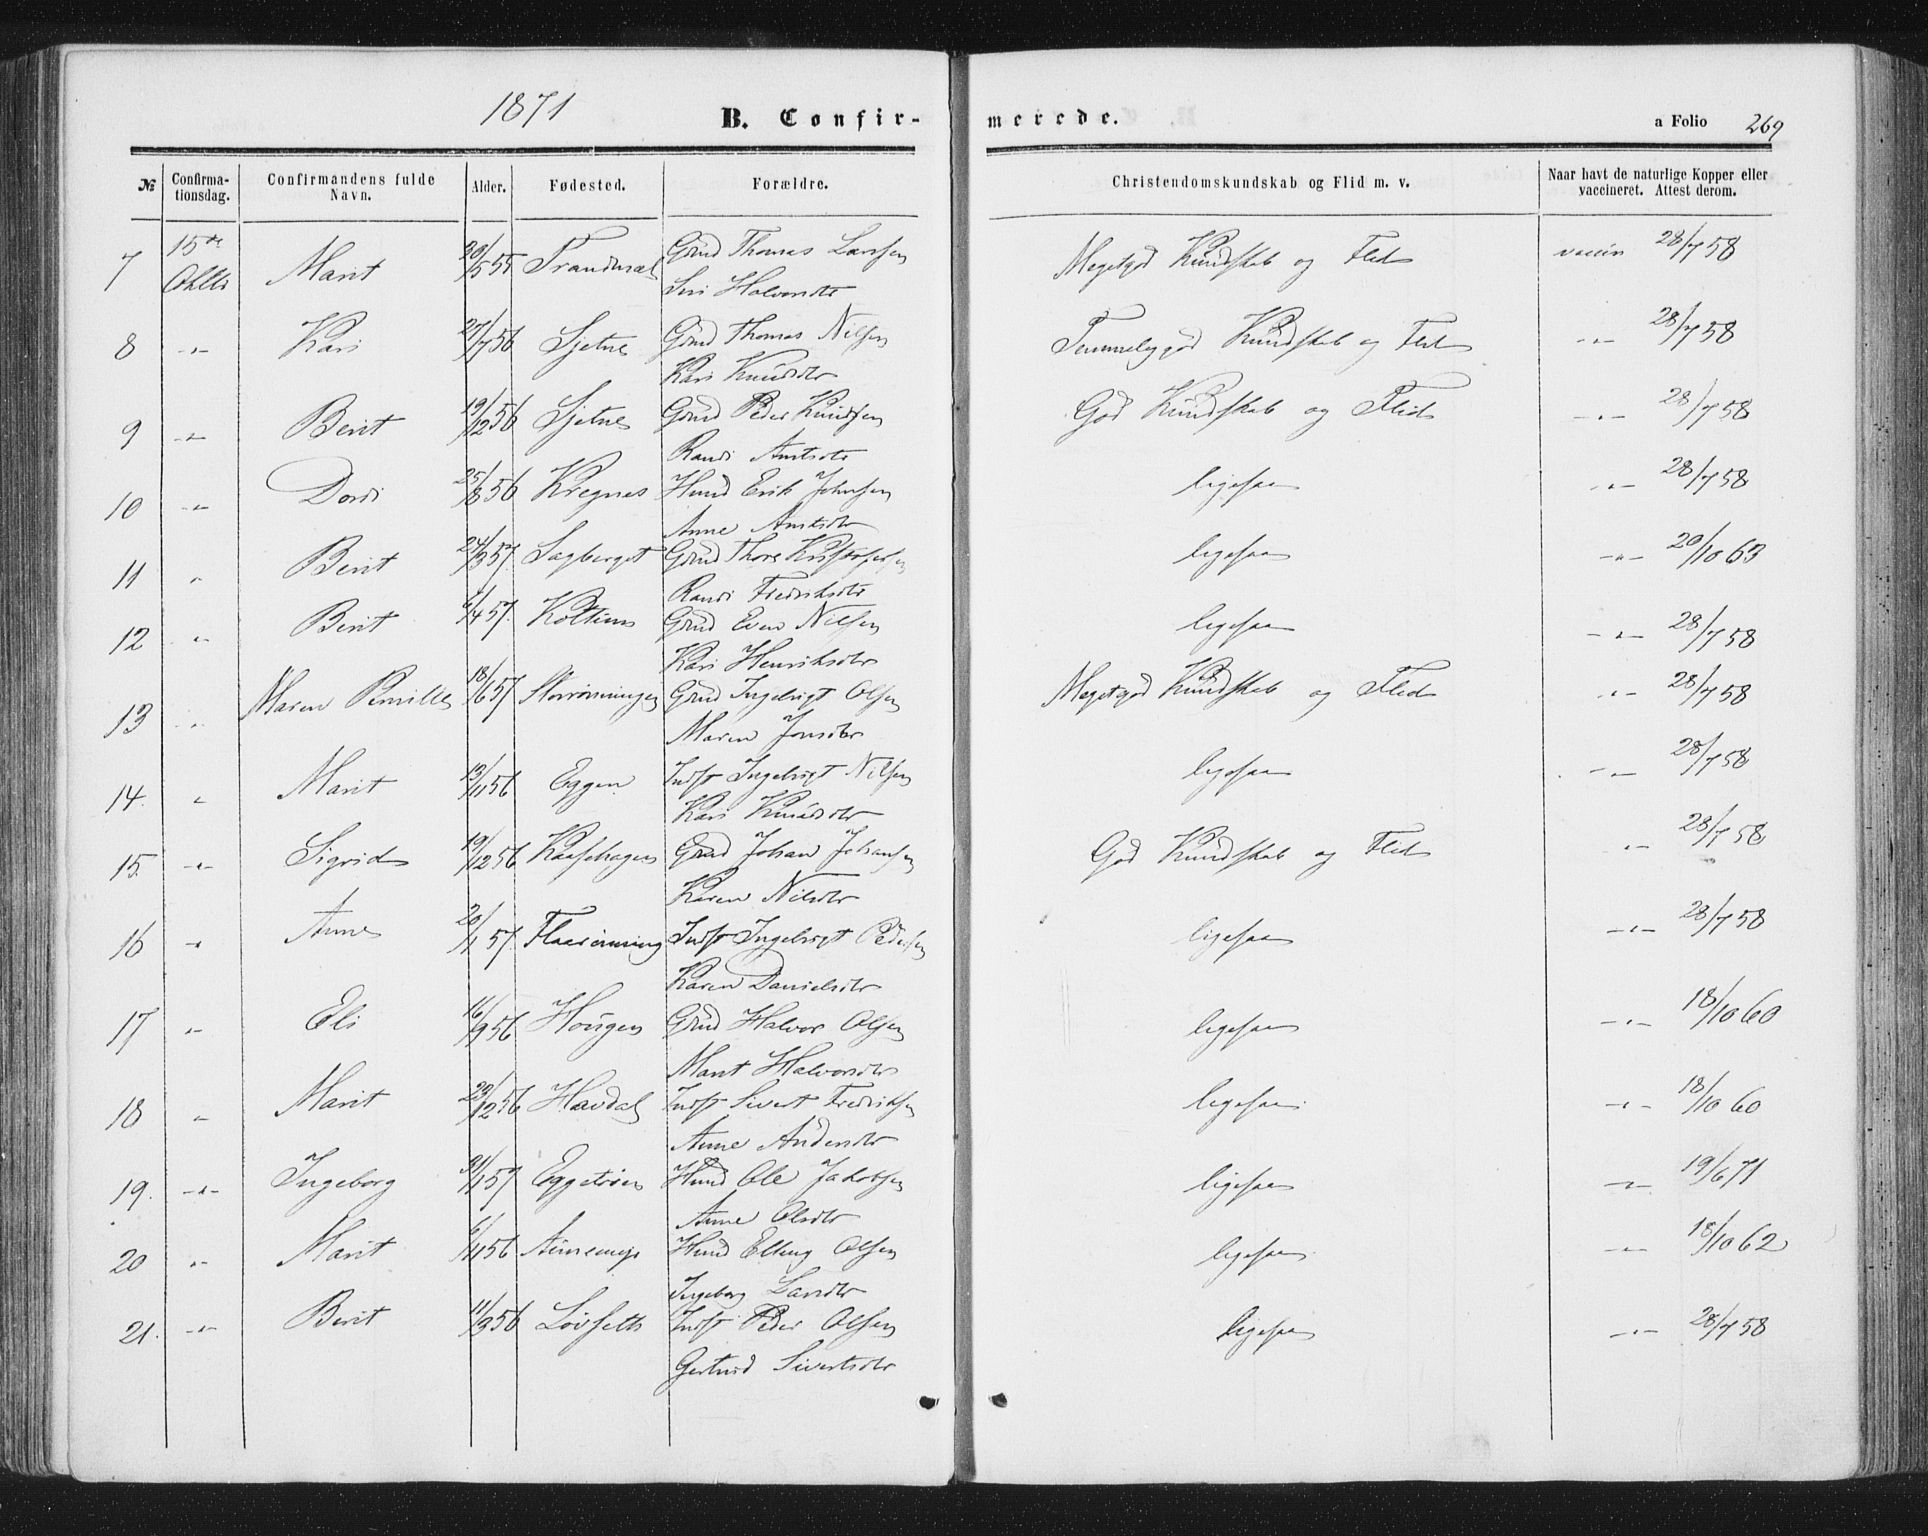 1871
B. Confir-
merede.
a Folio 269
№ Confirma-tionsdag. Confirmandens fulde Navn. Alder. Fødested. Forældre. Christendomskundskab og Flid m. v. Naar havt de naturlige Kopper eller vaccineret. Attest derom.
7 15de Oktbr Marit 30/5 55 Trandmæl Grmd Thomas Larssen Meget god Kundskab og Flid vaccin 28/7 58
Siri Halvorsdtr
8 -"- Kari 27/7 56 Sjetne Grmd Thomas Nilsen Temmelig god Kundskab og Flid -"- 28/7 58
Kari Knudsdtr
9 -"- Berit 19/12 56 Sjetne Grmd Peder Knudsen God Kundskab og Flid -"- 28/7 58
Randi Arntsdtr
10 -"- Dordi 25/8 56 Kregnes Husmd Erik Johnsen ligesaa -"- 28/7 58
Anne Arntsdtr
11 " Berit 24/3 57 Sagberget Grmd Thore Kristofersen ligesaa -"- 20/10 63
Randi Fredriksdtr
12 " Berit 6/4 57 Koltum Grmd Even Nilsen ligesaa -"- 28/7 58
Kari Henriksdtr
13 " Maren Pernille 18/6 57 Storrønningen Grmd Ingebrigt Olsen Meget god Kundskab og Flid -"- 28/7 58
Maren Jonsdtr
14. " Marit 13/11 56 Eggen Indst Ingebrigt Nilsen ligesaa -"- 28/7 58
Kari Knudsdtr
15. -"- Sigrid 19/12 56 Kaashagen Grmd Johan Johansen God Kundskab og Flid -"- 28/7 58
Karen Nilsdtr
16 " Anne 20/1 57 Flaarønning Indst Ingebrigt Pedersen ligesaa -"- 28/7 58
Karen Danielsdtr
17 -"- Eli 16/9 56 Hougen Grmd Halvor Olsen ligesaa -"- 18/10 60
Marit Halvorsdtr
18 " Marit 29/12 56 Havdal Indst Sivert Fredriksen ligesaa -"- 18/10 60
Anne Andersdtr
19. -"- Ingeborg 31/1 57 Eggetrøen Husmd Ole Jakobsen ligesaa -"- 19/6 71
Anne Olsdtr
20 -"- Marit 6/11 56 Husmd Elling Olsen ligesaa -"- 18/10 62
Ingeborg Larsdtr
21. -"- Berit 11/3 56 Løvseth Indst Peder Olsen ligesaa -"- 28/7 58
Gertrud Sivertsdtr